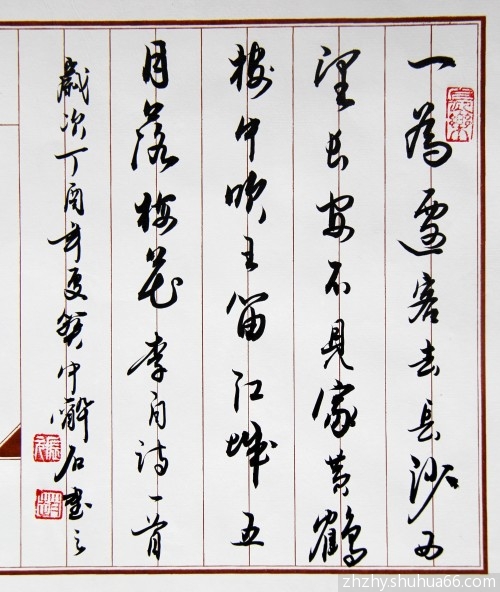 一為遷客去長沙西
望長安不見家黄鶴
樓中吹玉笛江城五
月落梅花李白诗一首
歲次丁酉年夏中醉石書之
zhzhy.shuhua66.com